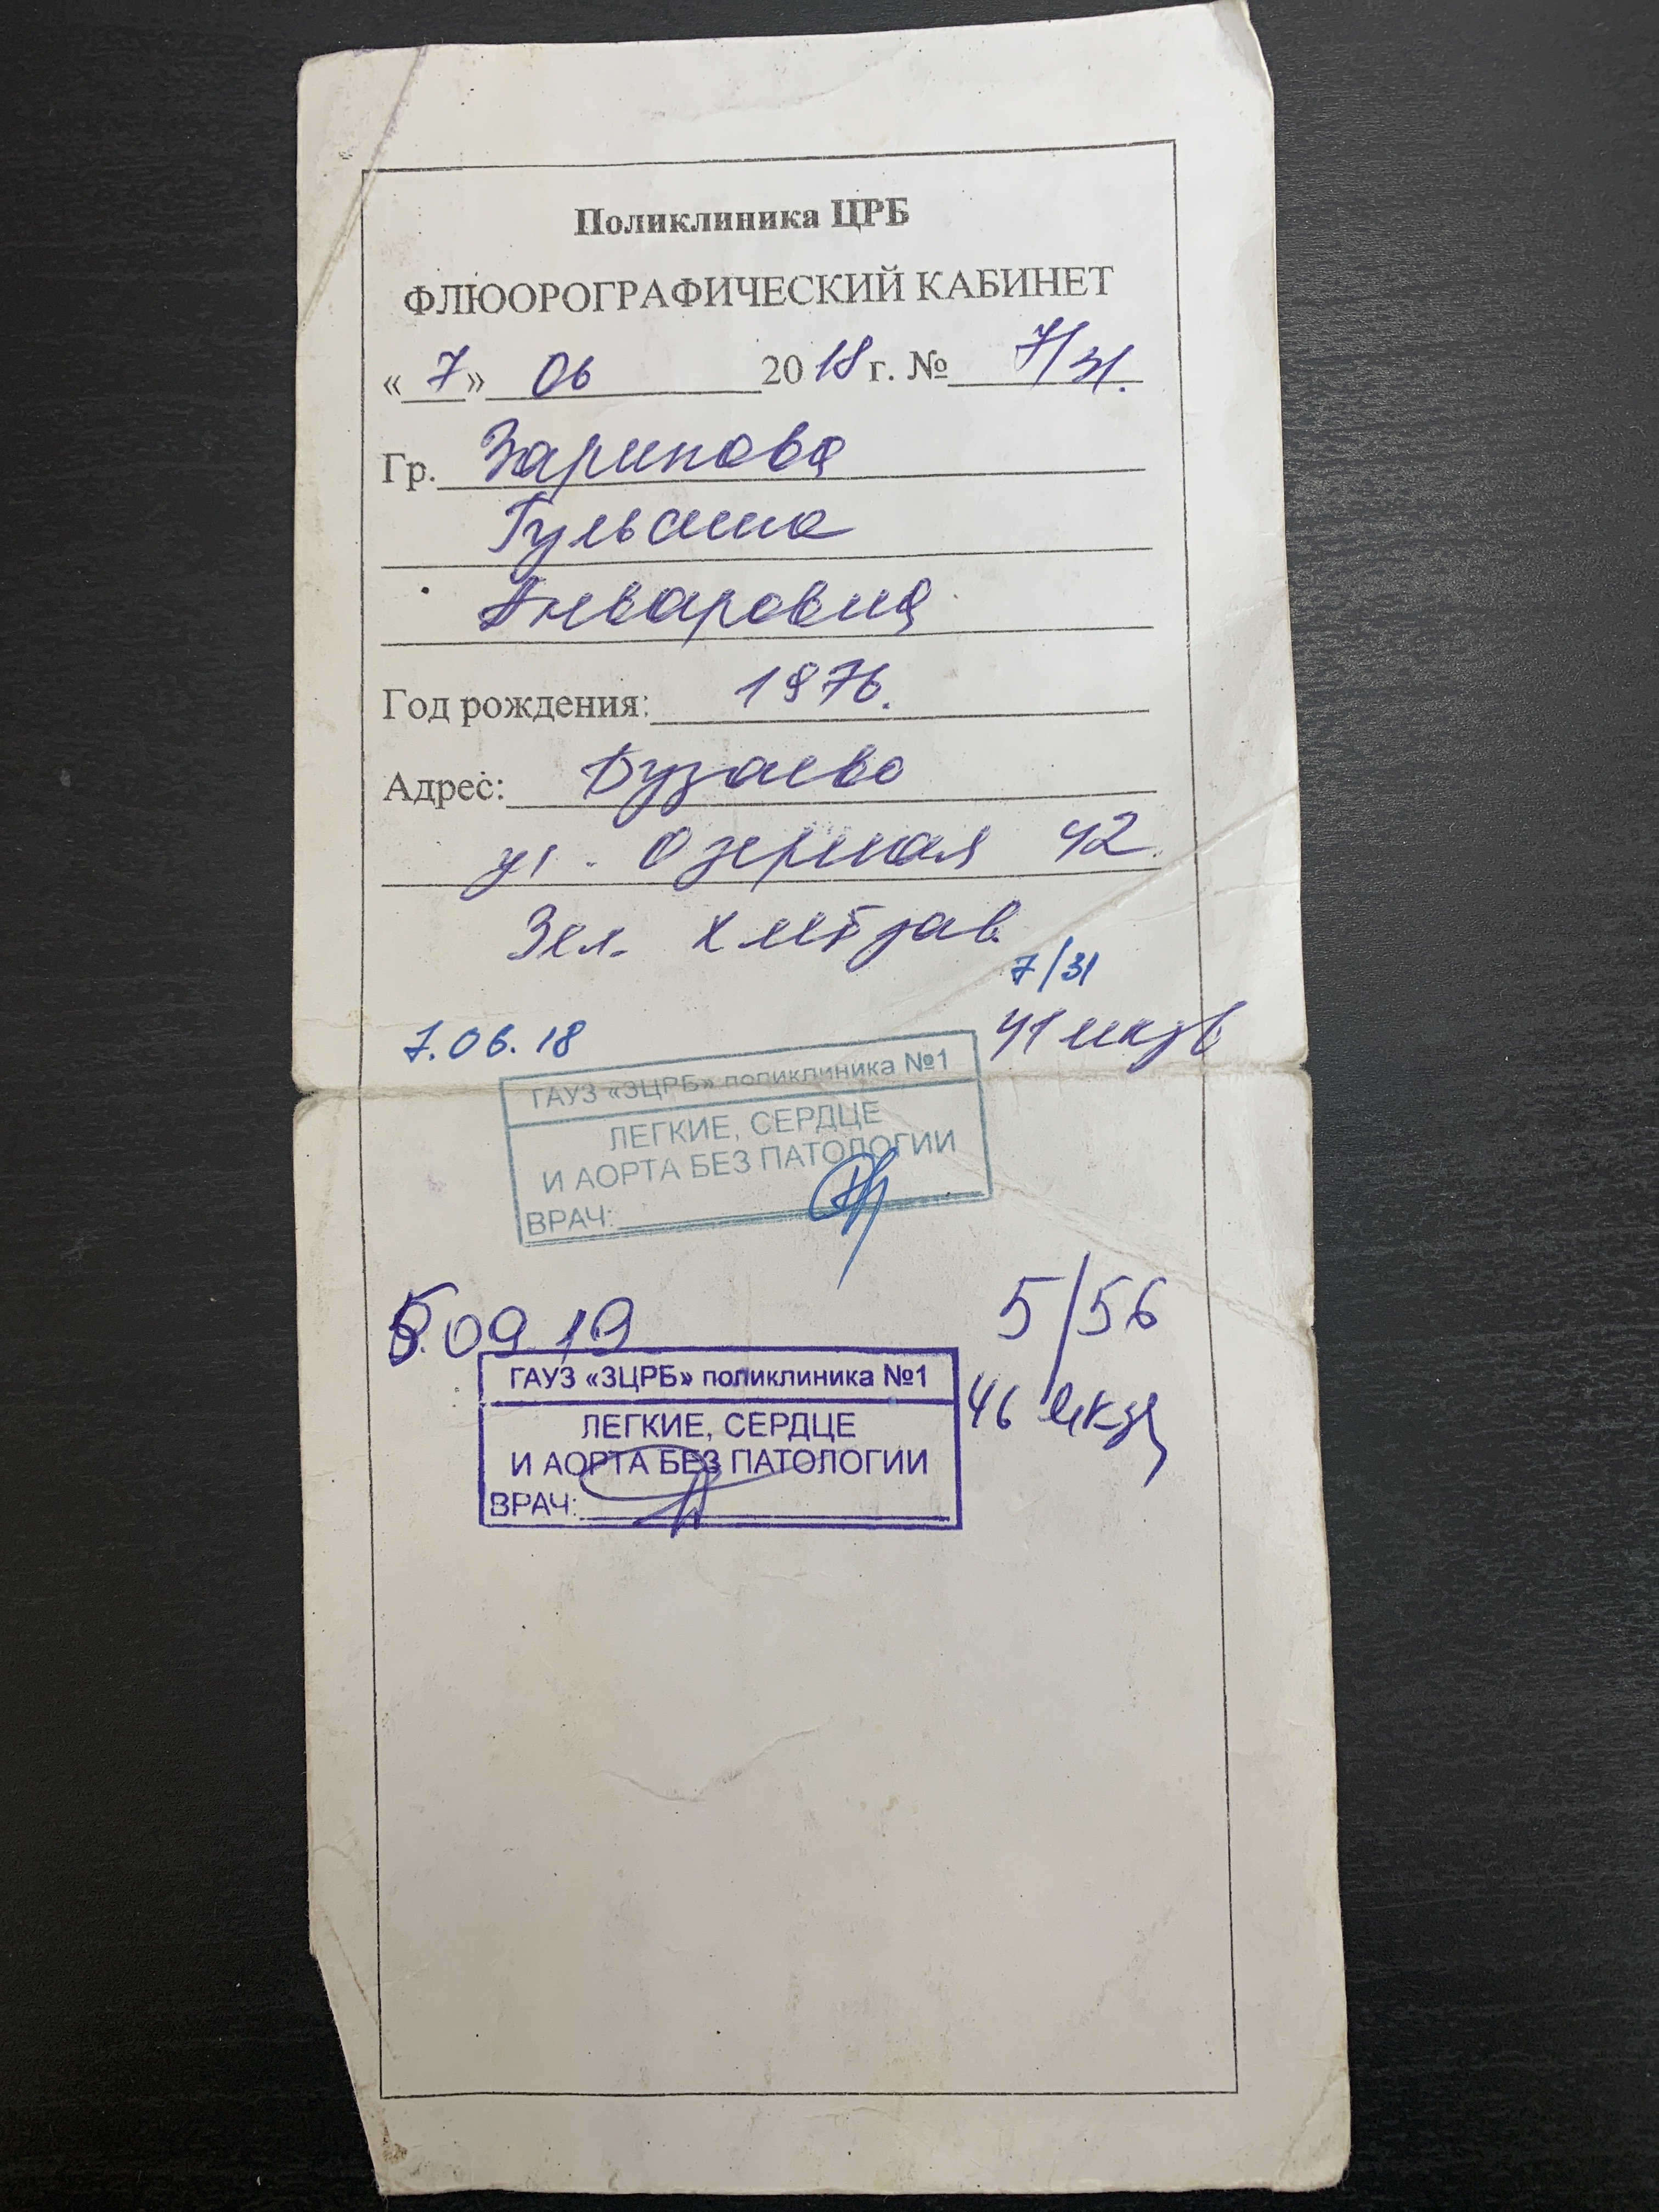 Поликлиника ЦРБ
ФЛЮОРОГРАФИЧЕСКИЙ КАБИНЕТ
«7» 06 2018 г. № 7/31.
Гр. Зарипова
Гульсина
Анваровна
Год рождения: 1976.
Адрес: Бузаево
ул. Озерная 42.
Зел. хлебзав.
7/31
7.06.18
41 мкзв
ГАУЗ «ЗЦРБ» поликлиника №1
ЛЕГКИЕ, СЕРДЦЕ
И АОРТА БЕЗ ПАТОЛОГИИ
ВРАЧ:
5.09.19
5/56
ГАУЗ «ЗЦРБ» поликлиника №1
46 мкзв
ЛЕГКИЕ, СЕРДЦЕ
И АОРТА БЕЗ ПАТОЛОГИИ
ВРАЧ: